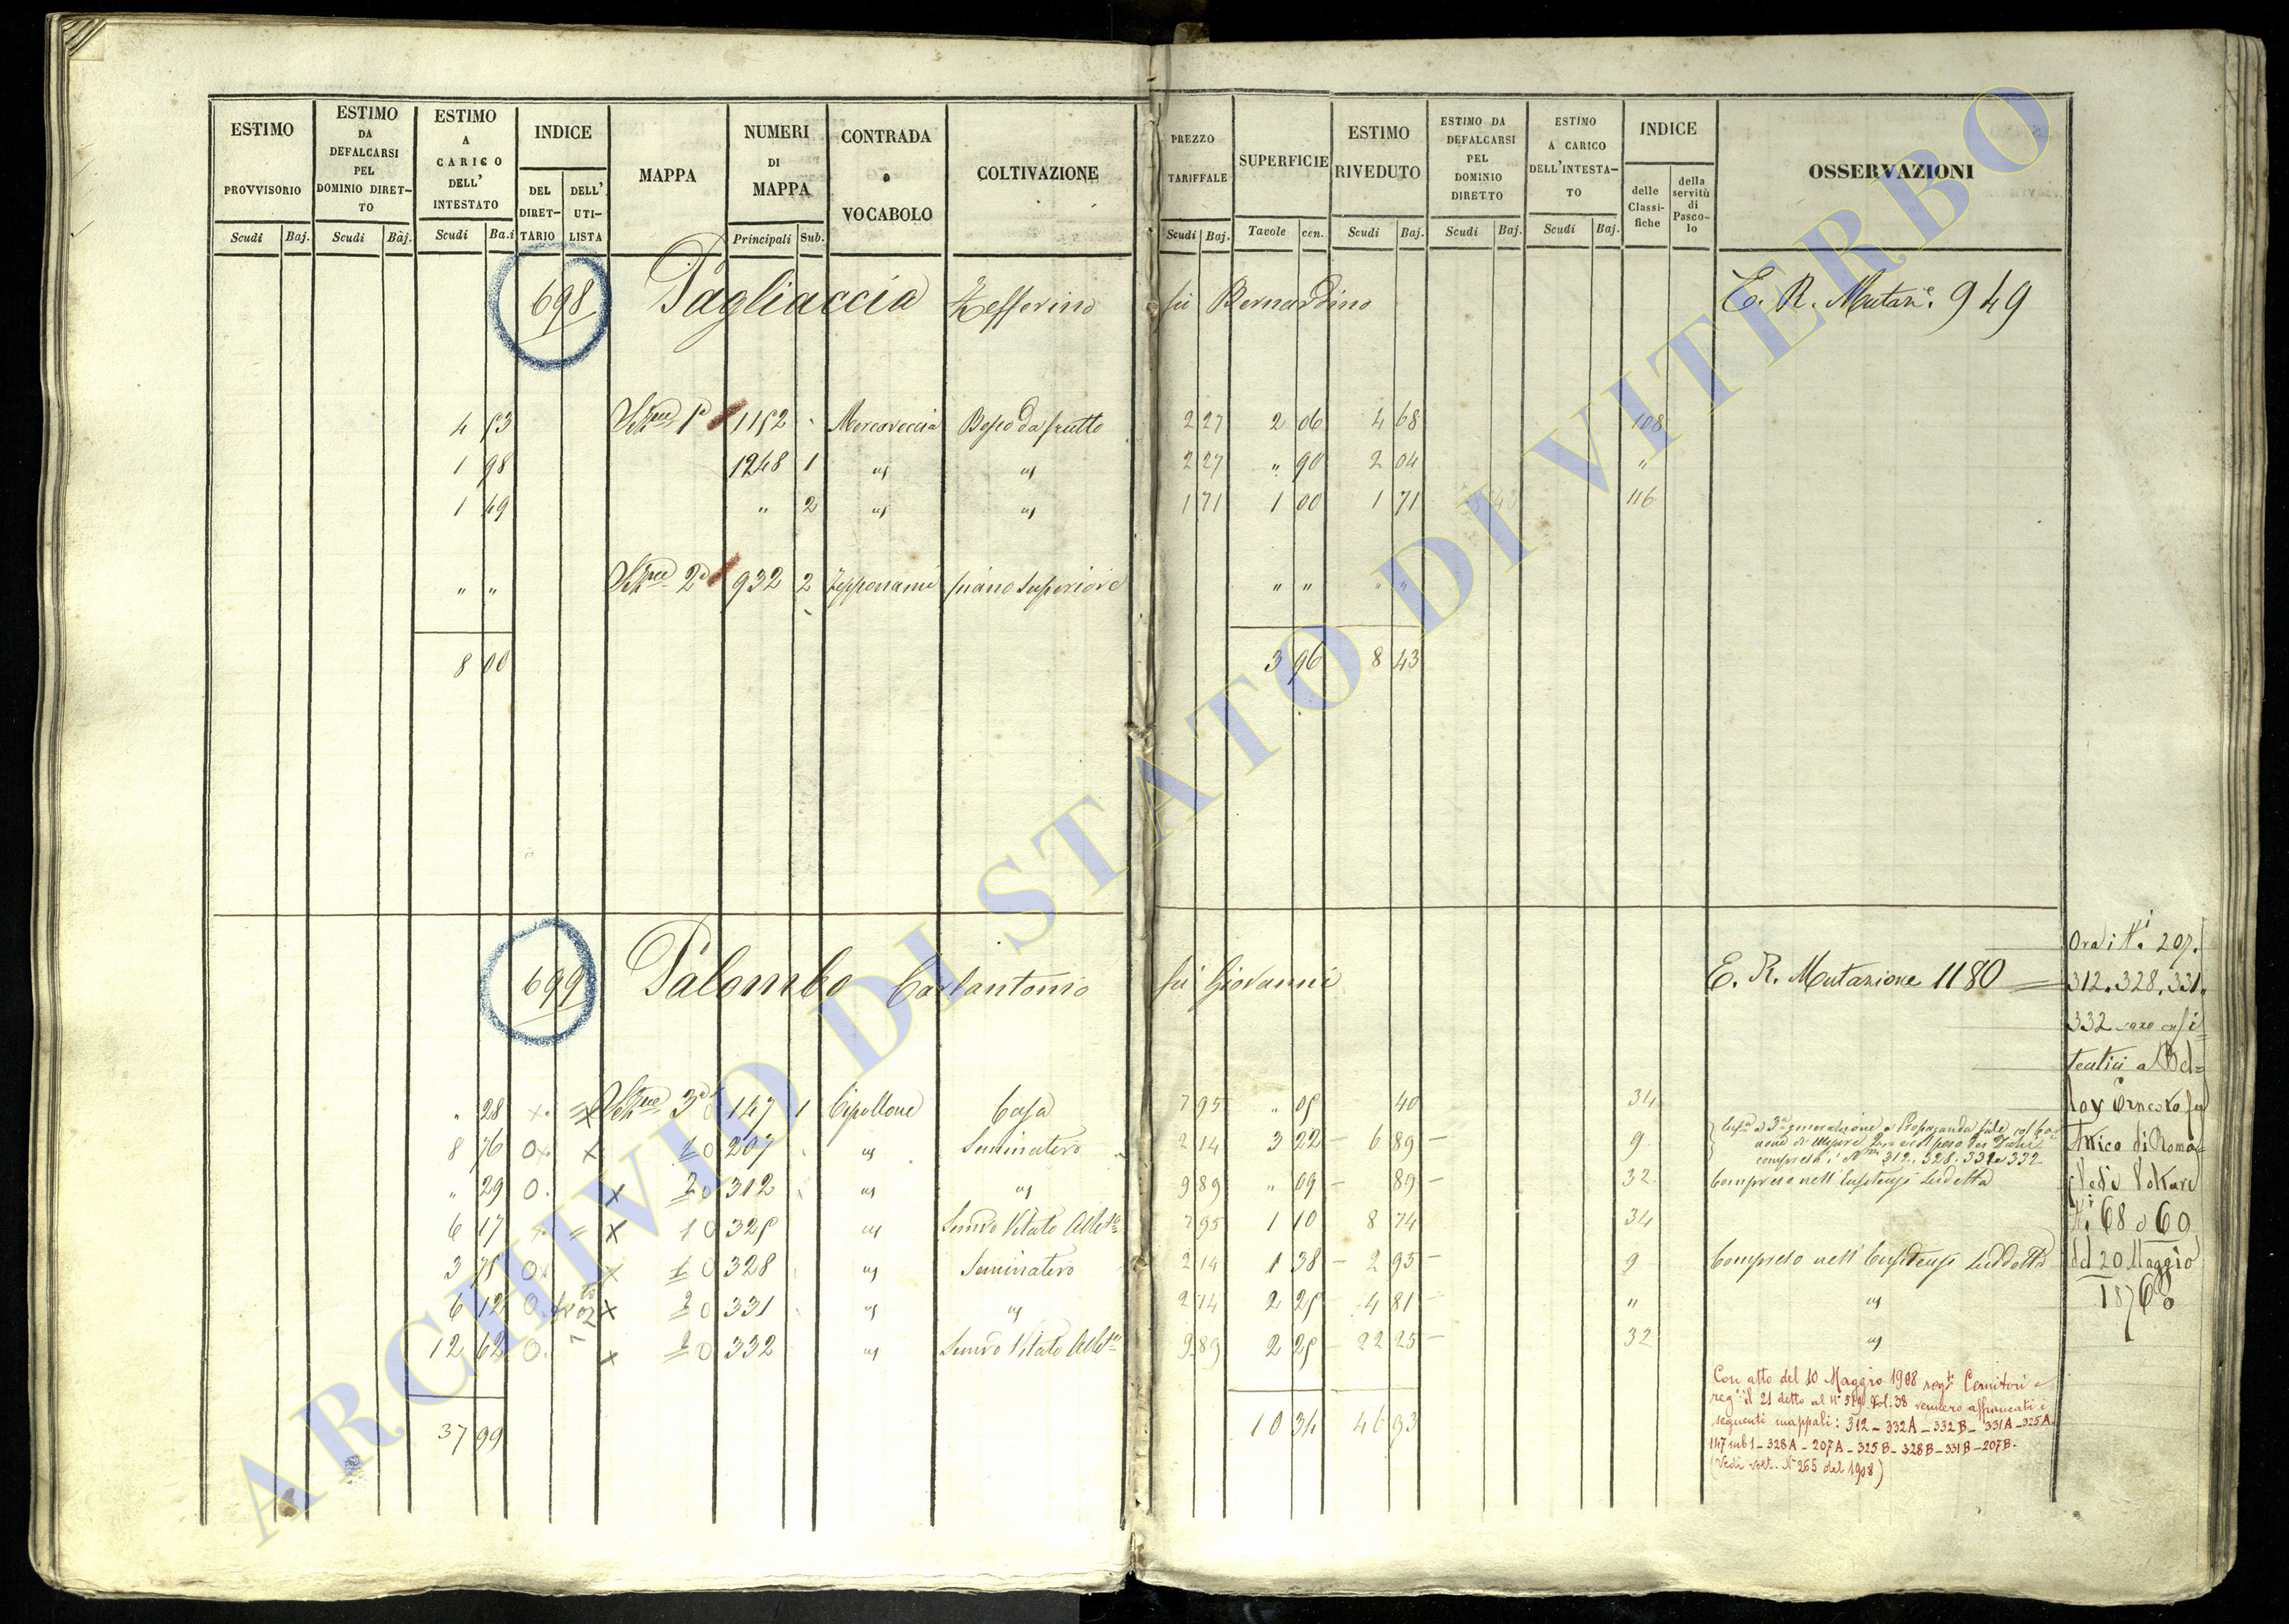 ESTIMO PROVVISORIO Scudi Baj.
ESTIMO DA DEFALCARSI PEL DOMINIO DIRETTO Scudi Bàj.
ESTIMO A CARICO DELL' INTESTATO Scudi Ba.i
INDICE DEL DIRETTARIO DELL' UTILISTA
MAPPA
NUMERI DI MAPPA Principali Sub.
CONTRADA o VOCABOLO
COLTIVAZIONE
PREZZO TARIFFALE Scudi Baj.
SUPERFICIE Tavole cen.
ESTIMO RIVEDUTO Scudi Baj.
ESTIMO DA DEFALCARSI PEL DOMINIO DIRETTO Scudi Baj.
ESTIMO A CARICO DELL'INTESTATO Scudi Baj.
INDICE delle Classifiche della servitù di Pascolo
OSSERVAZIONI
698 Pagliaccia Zefferino fu Bernardino E. R. Mutaz.e 949
4 53 1a 1152 Bosco da frutto 2 27 2 06 4 68 108
1 98 1248 1 " " 2 27 " 90 2 04 "
1 49 " 2 " " 1 71 1 00 1 71 116
" " 2a 932 2 Zepponami piano superiore " " " "
8 00 3 96 8 43
699 Palombo Carlantonio fu Giovanni E. R. Mutazione 1180
" 28 3a 147 1 Cipollone Casa 7 95 " 05 40 34
8 76 207 " Seminativo 2 14 3 22 6 89 9
compresi i N.ri 312. 328. 331 e 332
" 29 312 " " 9 89 " 09 89 32 Compreso nell' Enfiteusi sudetta
6 17 325 " Semvo Vitato 7 95 1 10 8 74 34
3 75 328 " Seminativo 2 14 1 38 2 95 9 Compreso nell' Enfiteusi suddetta
6 12 331 " " 2 14 2 25 4 81 " "
12 62 332 " Semvo Vitato 9 89 2 25 22 25 32 "
37 99 10 34 46 93
Con atto del 10 Maggio 1908
reg° il 21 detto al N° Vol. 38 vennero affrancati i
seguenti mappali: 312 - 332A - 332B - 331A - 325A
147 sub 1 - 328A - 207A - 325B - 328B - 331B - 207B -
(Vedi volt. N° 255 del 1908)
Ora i N.i 207.
312. 328. 331.
332 sono enfi
teutici a Bel=
loy Ernesto fu
di Roma
Vedi Volture
N.i 68 e 69
del 20 Maggio
1876
ARCHIVIO DI STATO DI VITERBO